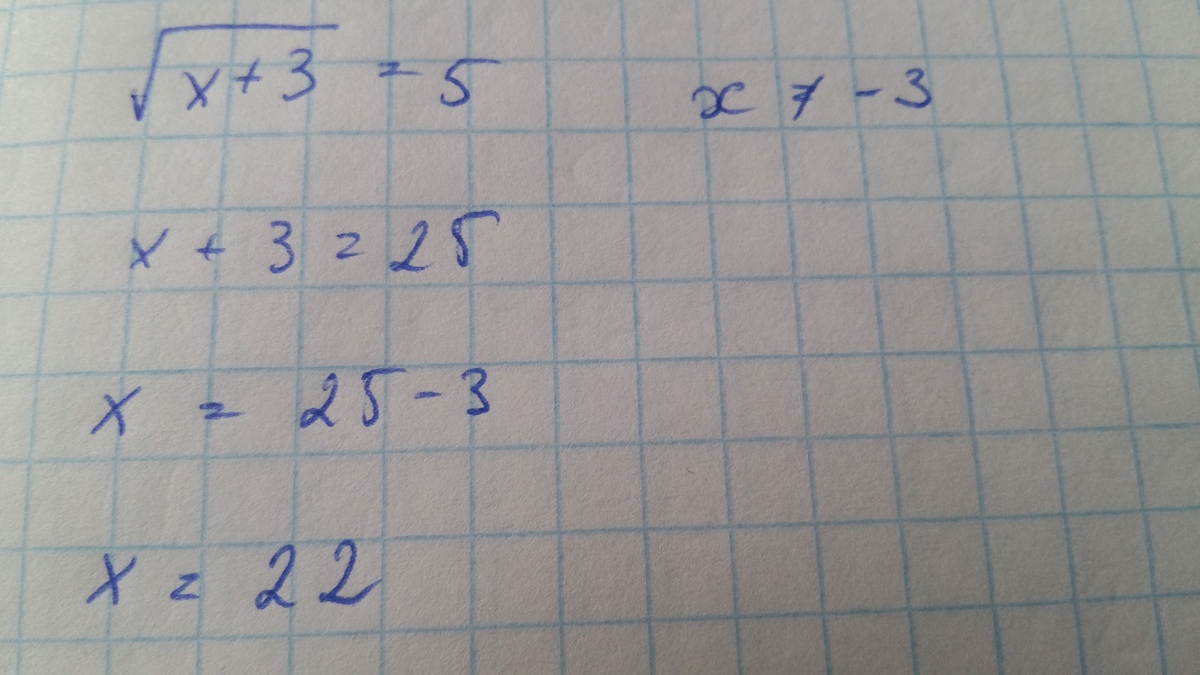 √(x+3) = 5 x ≠ -3
x + 3 = 25
x = 25 - 3
x = 22